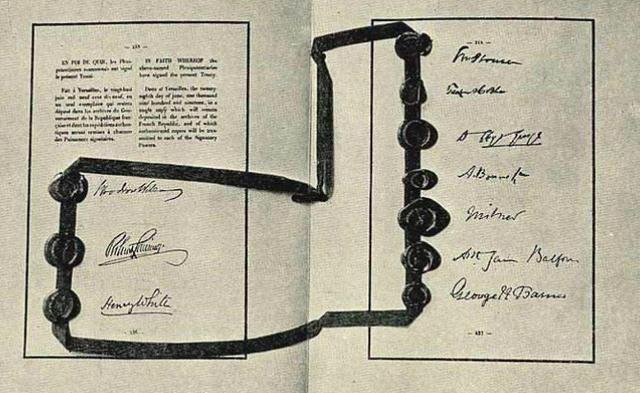 EN FOI DE QUOI, les Pléni-
potentiaires susnommés ont signé
le présent Traité.
Fait à Versailles, le vingt-huit
juin mil neuf cent dix-neuf, en
un seul exemplaire qui restera
déposé dans les archives du Gou-
vernement de la République fran-
çaise et dont les expéditions authen-
tiques seront remises à chacune
des Puissances signataires.
IN FAITH WHEREOF the
above-named Plenipotentiaries
have signed the present Treaty.
Done at Versailles, the twenty-
eighth day of June, one thousand
nine hundred and nineteen, in a
single copy which will remain
deposited in the archives of the
French Republic, and of which
authenticated copies will be trans-
mitted to each of the Signatory
Powers.
Woodrow Wilson
Robert Lansing
Henry White
A. Bonar Law
Milner
Arthur James Balfour
George N. Barnes